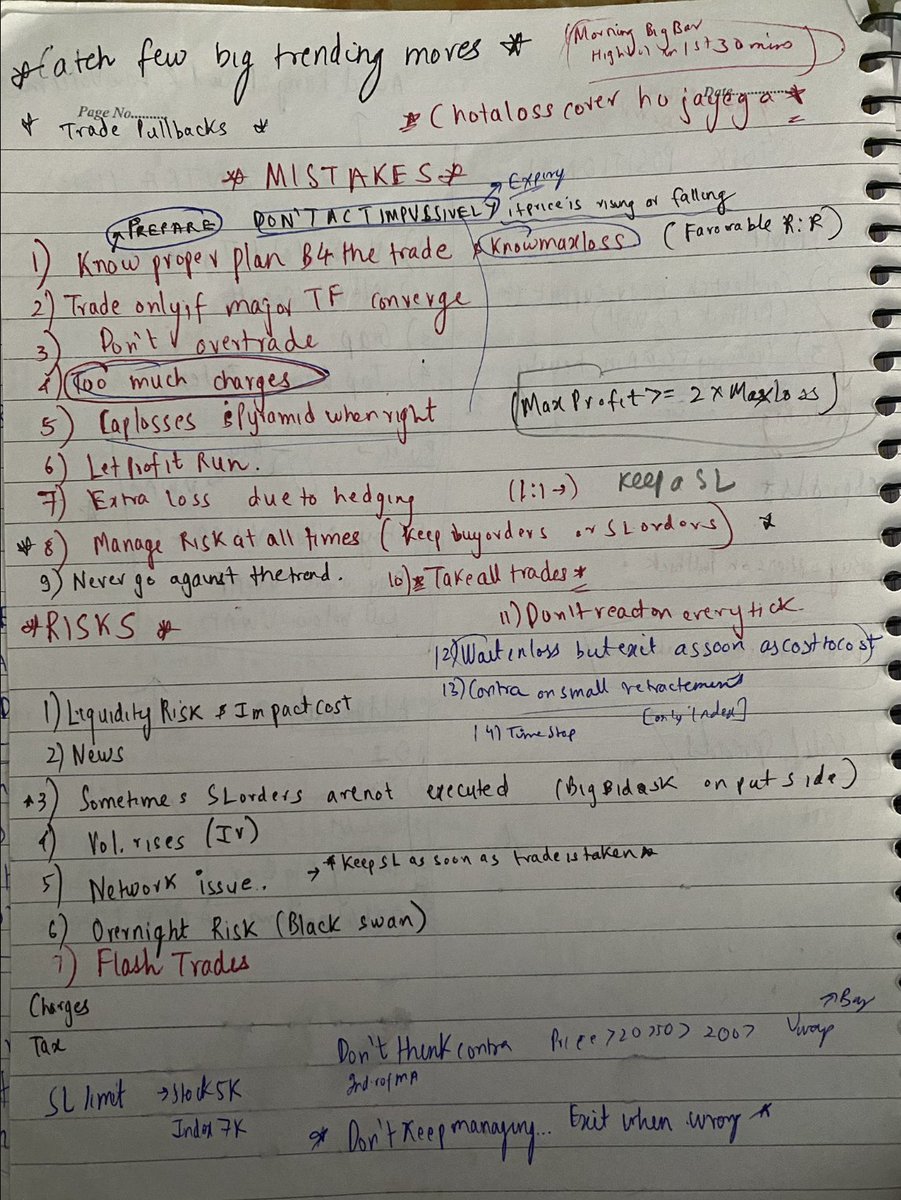 *Catch few big trending moves *
(Morning Big Bar
High vol in 1st 30 mins
Page No..........
Date..............
* Trade Pullbacks *
* Chotaloss cover ho jayega *
* MISTAKES *
Expiry
PREPARE DON'T ACT IMPUSSIVELY if price is rising or falling
1) Know proper plan B4 the trade & Know max loss (Favorable R:R)
2) Trade only if major TF converge
3) Don't overtrade
4) Too much charges
(Max Profit >= 2 x Max loss)
5) Cap losses & Pyramid when right
6) Let Profit Run.
7) Extra loss due to hedging (1:1→) Keep a SL
* 8) Manage Risk at all times (Keep buy orders or SL orders) *
9) Never go against the trend. 10) * Take all trades *
*RISKS *
11) Don't react on every tick
12) Wait in loss but exit as soon as cost to cost
13) Contra on small retracement
[only index]
14) Time Stop
1) Liquidity Risk & Impact cost
2) News
*3) Sometimes SL orders are not executed (Big Bid ask on put side)
4) Vol. rises (IV)
5) Network issue. → * Keep SL as soon as trade is taken *
6) Overnight Risk (Black swan)
7) Flash Trades
Charges
Tax
Don't think contra Price > 20 > 50 > 200 > Vwap
SL limit → Stock 5K
Index 7K
* Don't keep managing... Exit when wrong *